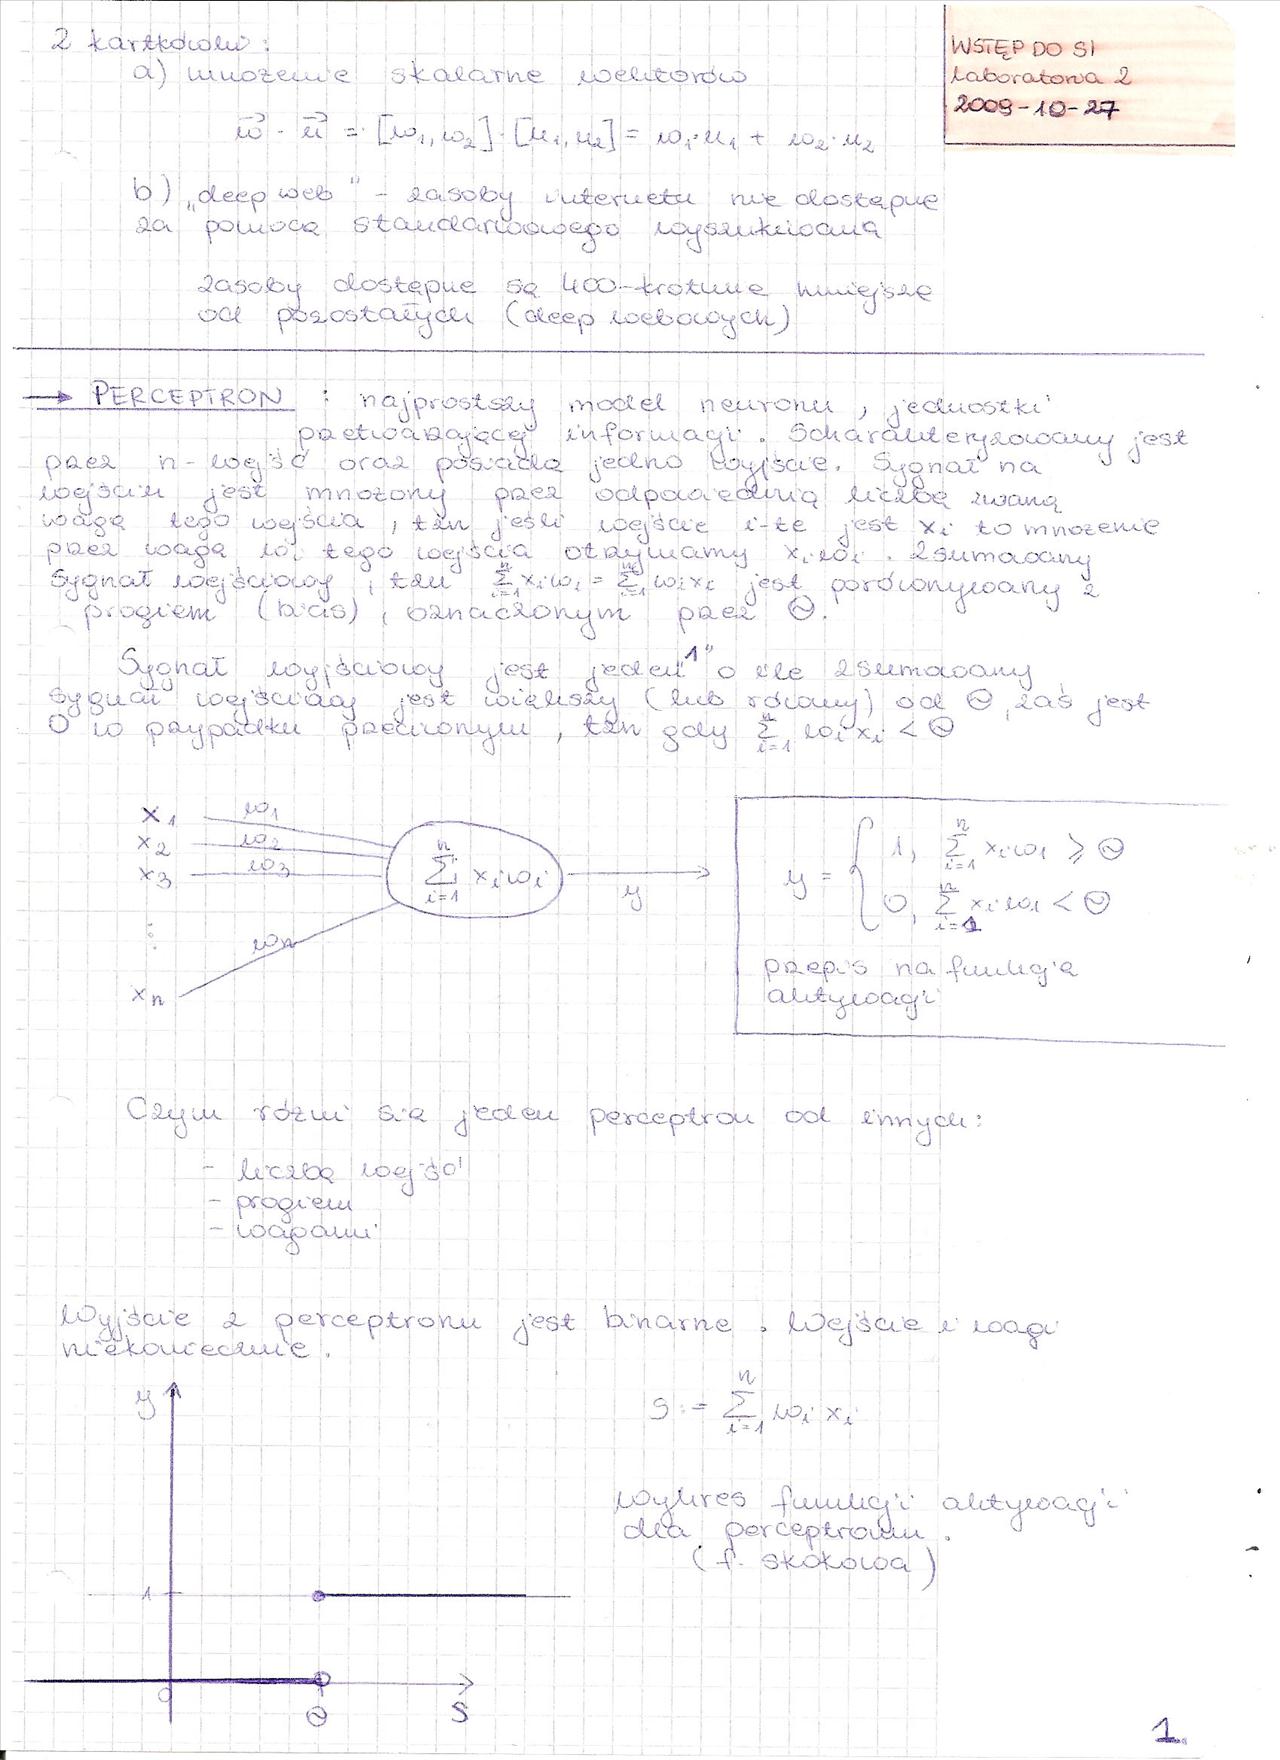 WSTĘP DO SI
laboratoria 2
2009-10-27
z kartkówki:
a) mnożenie skalarne wektorów
w⃗ · u⃗ = [w₁, w₂] · [u₁, u₂] = w₁·u₁ + w₂·u₂
b) „deep web" - zasoby internetu nie dostępne
za pomocą standardowego wyszukiwania
zasoby dostępne są 400-krotnie mniejsze
od pozostałych (deep webowych)
→ PERCEPTRON : najprostszy model neuronu, jednostki
przetwarzającej informacji. Scharakteryzowany jest
przez n-wejść oraz posiada jedno wyjście. Sygnał na
wejściu jest mnożony przez odpowiednią liczbę zwaną
wagą tego wejścia, tzn jeśli wejście i-te jest xᵢ to mnożenie
przez wagę wᵢ tego wejścia otrzymamy xᵢwᵢ. Zsumowany
sygnał wejściowy, tzn ∑ⁿᵢ₌₁ xᵢwᵢ = ∑ⁿᵢ₌₁ wᵢxᵢ jest porównywany z
progiem (bias), oznaczonym przez Θ.
Sygnał wyjściowy jest jeden „1" o ile zsumowany
sygnał wejściowy jest większy (lub równy) od Θ, zaś jest
0 w przypadku przeciwnym, tzn gdy ∑ⁿᵢ₌₁ wᵢxᵢ < Θ
x₁ w₁
x₂ w₂
x₃ w₃
⋮
xₙ wₙ
∑ⁿᵢ₌₁ xᵢwᵢ
y
y = { 1, ∑ⁿᵢ₌₁ xᵢwᵢ ⩾ Θ
0, ∑ⁿᵢ₌₁ xᵢwᵢ < Θ
przepis na funkcję
aktywacji
Czym różni się jeden perceptron od innych:
- liczbą wejść
- progiem
- wagami
Wyjście z perceptronu jest binarne. Wejście i wagi
niekoniecznie.
y
S := ∑ⁿᵢ₌₁ wᵢxᵢ
wykres funkcji aktywacji
dla perceptronu.
(f. skokowa)
1
0
Θ
S
1.